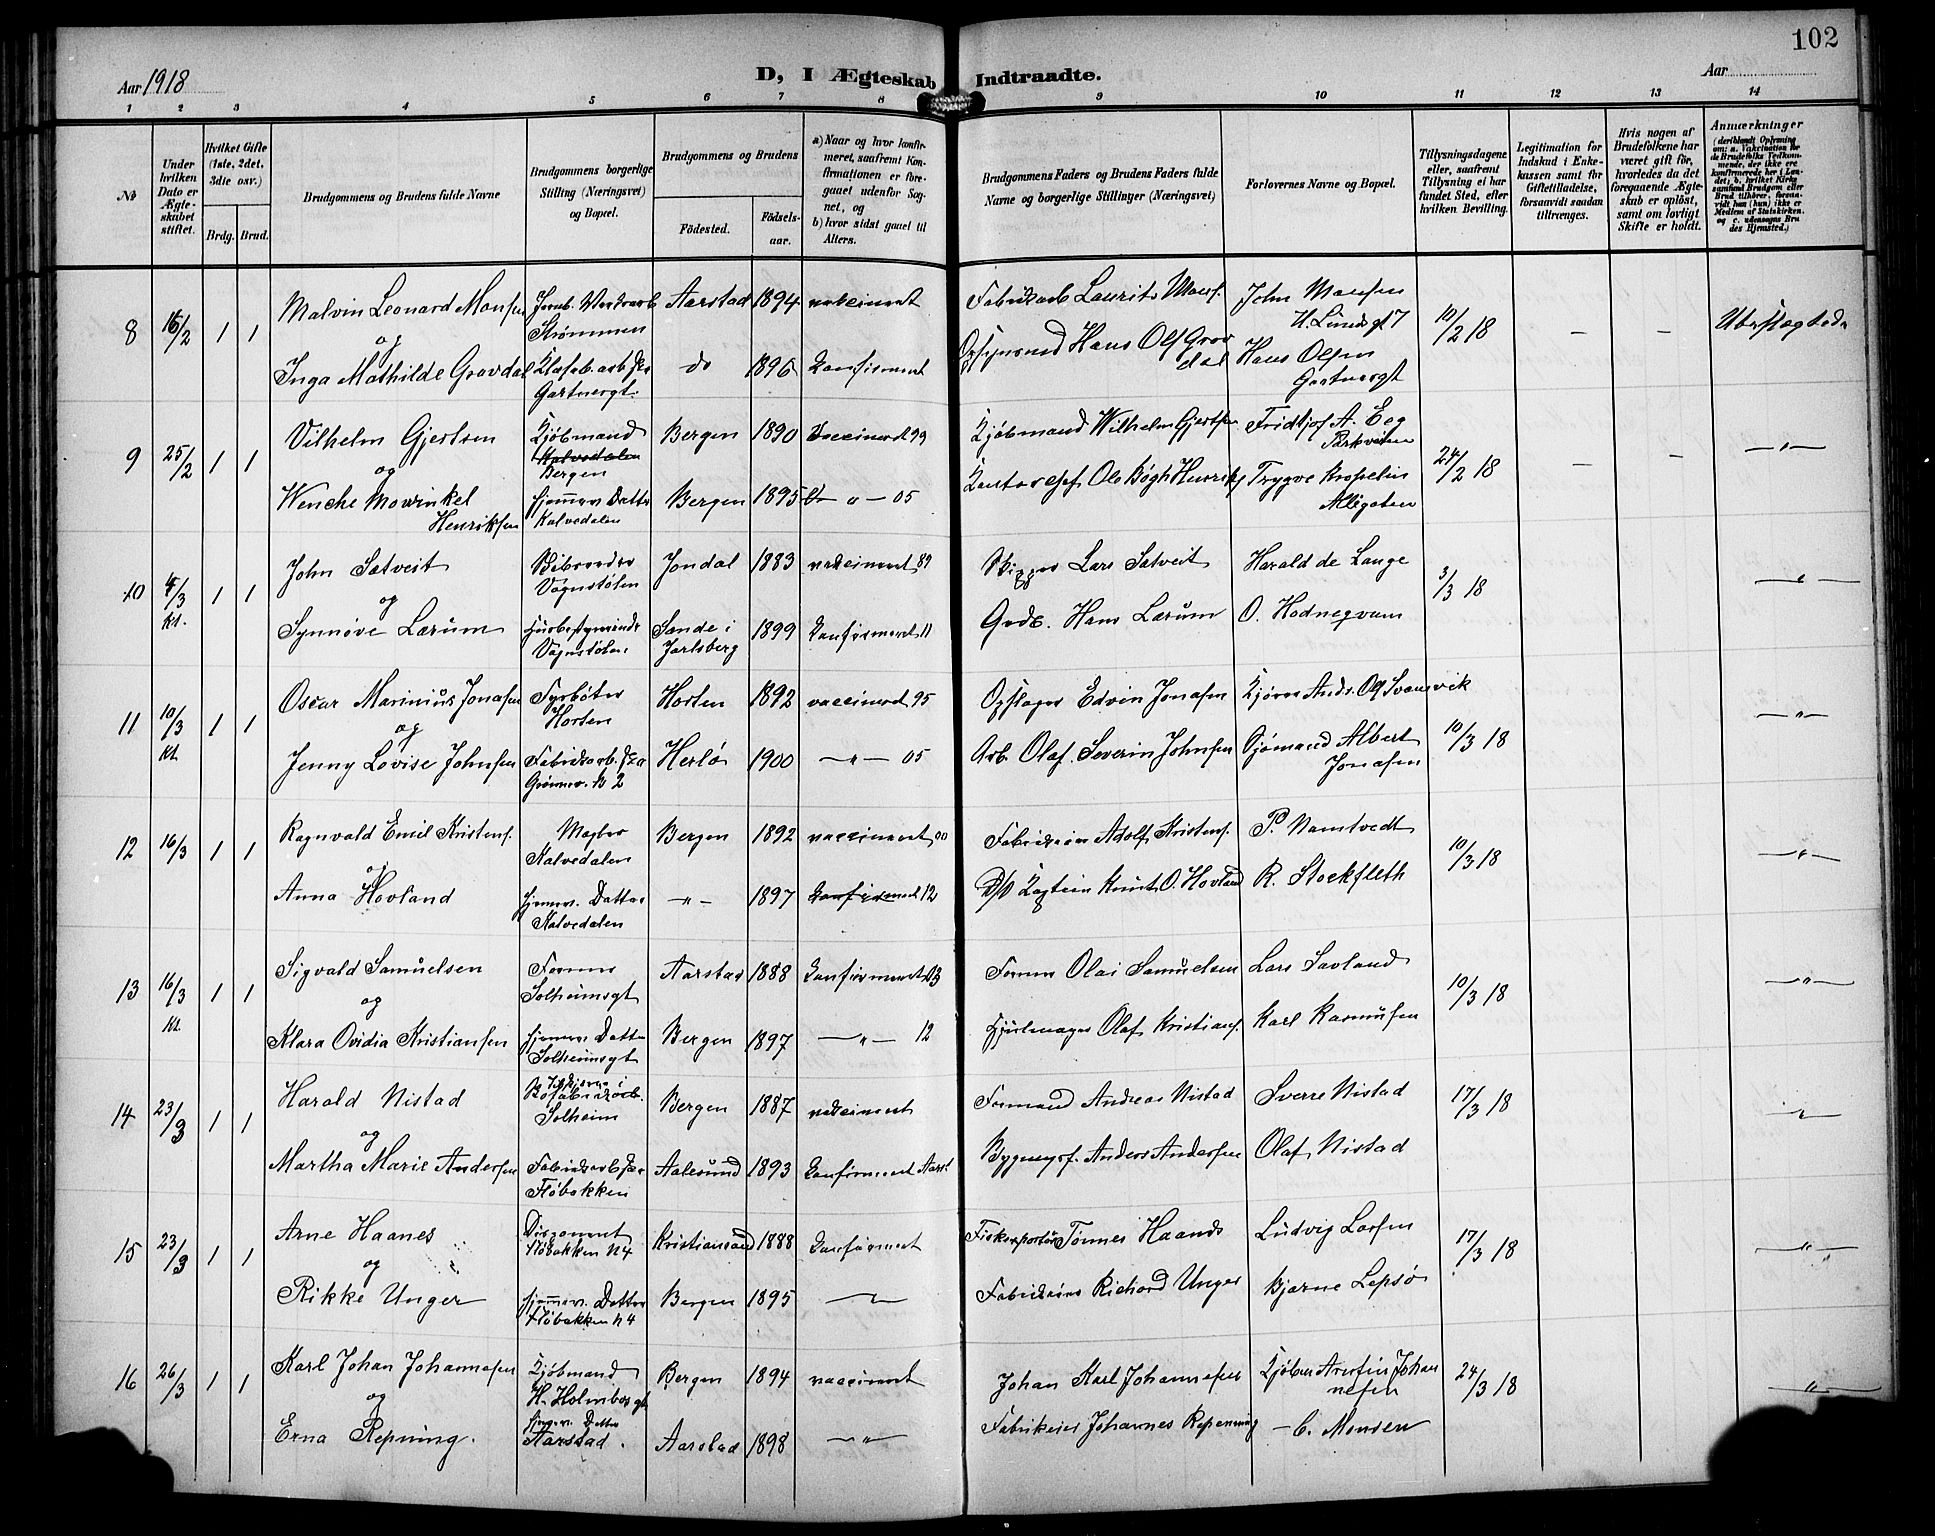 102
Aar 1918
D, I Ægteskab Indtraadte.
Aar
1 2 3 4 5 6 7 8 9 10 11 12 13 14
No
Under hvilken Dato er Ægteskabet stiftet.
Hvilket Gifte (1ste, 2det, 3die osv.)
Brdg. Brud.
Brudgommens og Brudens fulde Navne
Brudgommens borgerlige Stilling (Næringsvei) og Bopæl.
Brudgommens og Brudens
Fødested.
Fødselsaar.
a) Naar og hvor konfirmeret, saafremt Konfirmationen er foregaaet udenfor Sognet, og
b) hvor sidst gaaet til Alters.
Brudgommens Faders og Brudens Faders fulde Navne og borgerlige Stillinger (Næringsvei)
Forlovernes Navne og Bopæl.
Tillysningsdagene eller, saafremt Tillysning ei har fundet Sted, efter hvilken Bevilling.
Legitimation for Indskud i Enkekassen samt for Giftetilladelse, forsaavidt saadan tiltrænges.
Hvis nogen af Brudefolkene har været gift før, hvorledes da det foregaaende Ægteskab er opløst, samt om lovligt Skifte er holdt.
Anmærkninger
8 16/2 1 1 Malvin Leonard Monsen
Strømmen
Aarstad 1894 vaccineret
Fabrikarb Laurits Mons. John Monsen
10/2 18 – – Ubeslægtede
og
Inga Mathilde Gravdal
Gartnergt.
do 1896 Konfirmeret
Opsynsmd Hans Ols Gravdal Hans Olsen
Gartnergt
9 25/2 1 1 Vilhelm Gjertsen
Kjøbmand
Kalvedalen
Bergen
Bergen 1890 Vaccineret 99
Kjøbmand Wilhelm Gjertsen Fridtjof A. Eeg
Parkveien
24/2 18 – – —"—
og
Wenche Mowinkel Henriksen
Hjemmev. Datter
Kalvedalen
Bergen 1895 —"— 05
Kontorchef Ole Bøgh Henriks Trygve Kropelin
Allegaten
10 4/3 Kl. 1 1 John Sætveit
Vognstølen
Jondal 1883 vaccineret 89
Skipper Lars Sætveit Harald de Lange
3/3 18 —"—
og
Synnøve Lærum
Husbestyrerinde
Vognstølen
Sande i Jarlsberg 1899 Konfirmeret 11
Grdb. Hans Lærum O. Hodnegvam
11 10/3 Kl 1 1 Oscar Marinius Jonasen
Fyrbøter
Horten
Horten 1892 vaccineret 95
Edvin Jonasen Kjører Ands. Ols Svansvik
10/3 18 —"—
og
Jenny Lovise Johnsen
Fabrikarb.
Grønnev. N 2
Herlø 1900 —"— 05
Arb. Olaf Severin Johnsen Sjømand Albert Jonasen
12 16/3 1 1 Ragnvald Emil Kristens.
Mægler
Kalvedalen
Bergen 1892 vaccineret 00
Fabrikeier Adolf Kristens. P. Namtvedt
10/3 18 —"—
og
Anna Hovland
Hjemmev. Datter
Kalvedalen
—"— 1897 Konfirmeret 12
D/S Kaptein Knut O. Hovland R. Stockfleth
13 16/3 Kl. 1 1 Sigvald Samuelsen
Former
Solheimsgt
Aarstad 1888 Konfirmeret 03
Former Olai Samuelsen Lars Savland
10/3 18 —"—
og
Klara Ovidia Kristiansen
Hjemmev. Datter
Solheimsgt
Bergen 1897 —"— 12
Hjulmager Olaf Kristians. Karl Rasmusen
14 23/3 1 1 Harald Nistad
Solheim
Bergen 1887 vaccineret
Formand Andreas Nistad Sverre Nistad
17/3 18 —"—
og
Martha Marie Andersen
Fabrikarb.
Fløbakken
Aalesund 1893 Konfirmeret Aarst
Bygmestr. Anders Andersen Olaf Nistad
15 23/3 1 1 Arne Haanes
Disponent
Fløbakken N4
Kristiansand 1888 Konfirmeret
Fiskexportør Tønnes Haanes Ludvig Larsen
17/3 18 —"—
og
Rikke Unger
Hjemmev. Datter
Fløbakken N 4
Bergen 1895 —"—
Fabrikeier Richard Unger Bjarne Lepsø
16 26/3 1 1 Karl Johan Johannesen
Kjøbmand
H. Holmboesgt
Bergen 1894 vaccineret
Johan Karl Johannesen Johannesen
24/3 18 —"—
og
Erna Repning.
Hjemmev. Datter
Aarstad.
Aarstad 1898 —"—
Fabrikeier Johannes Repenning – C. Monsen